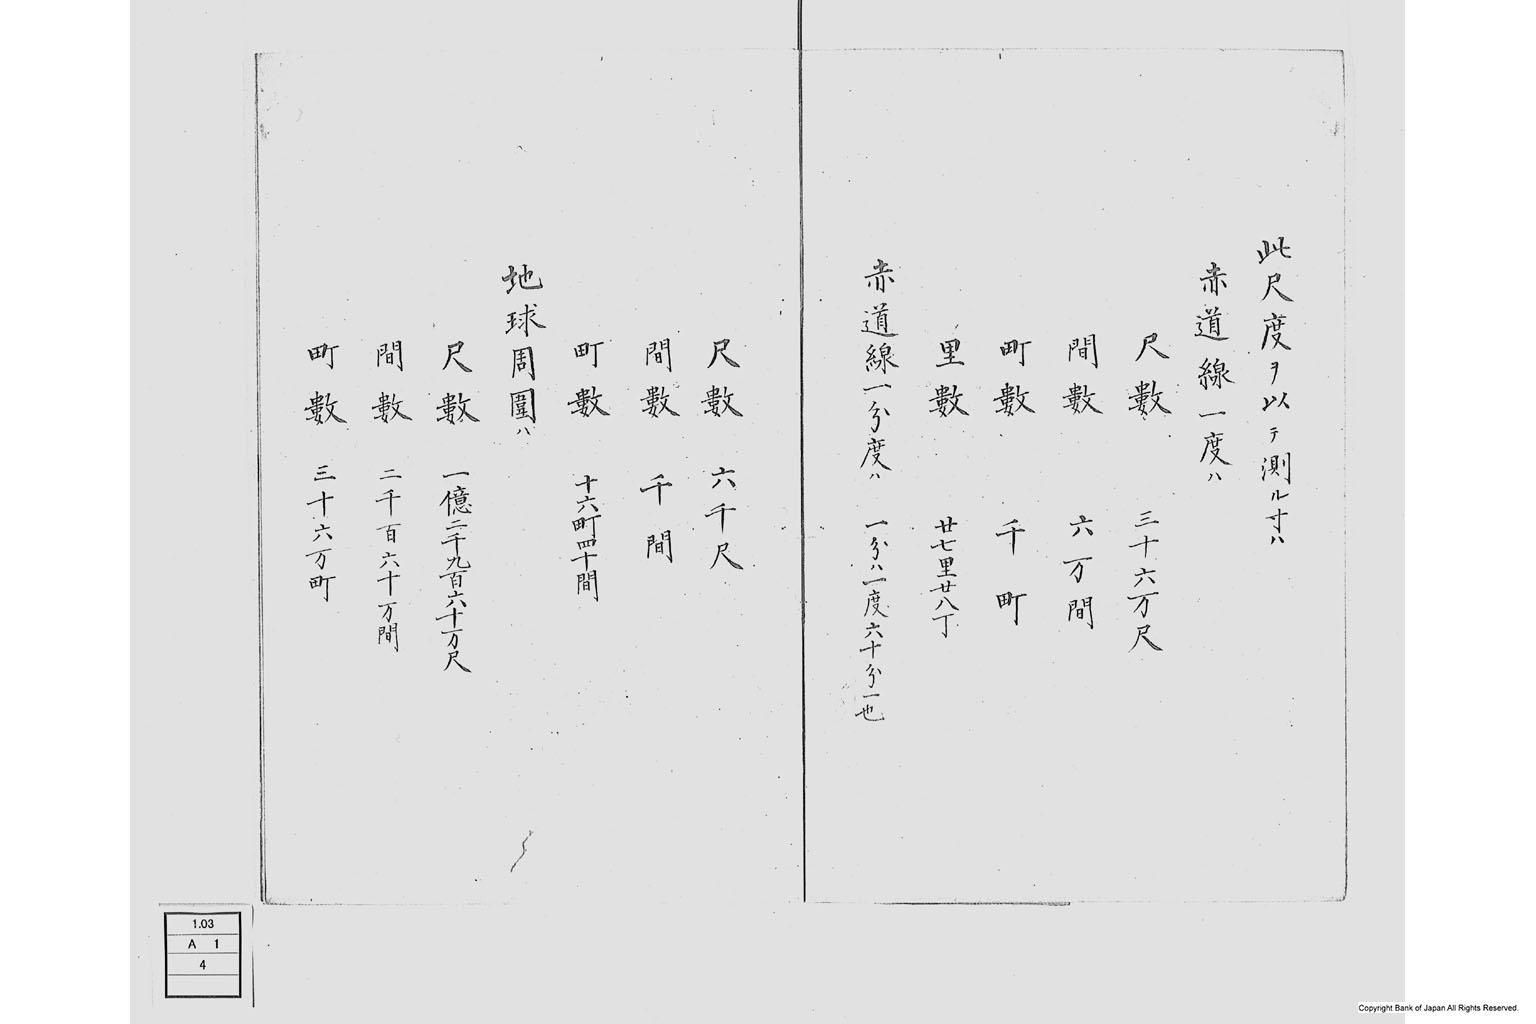 此尺度ヲ以テ測ル寸ハ
赤道線一度ハ
尺數 三十六万尺
間數 六万間
町數 千町
里數 廿七里廿八丁
赤道線一分度ハ 一分ハ一度六十分一也
尺數 六千尺
間數 千間
町數 十六町四十間
地球周圍ハ
尺數 一億二千九百六十万尺
間數 二千百六十万間
町數 三十六万町
1.03
A 1
4
Copyright Bank of Japan All Rights Reserved.